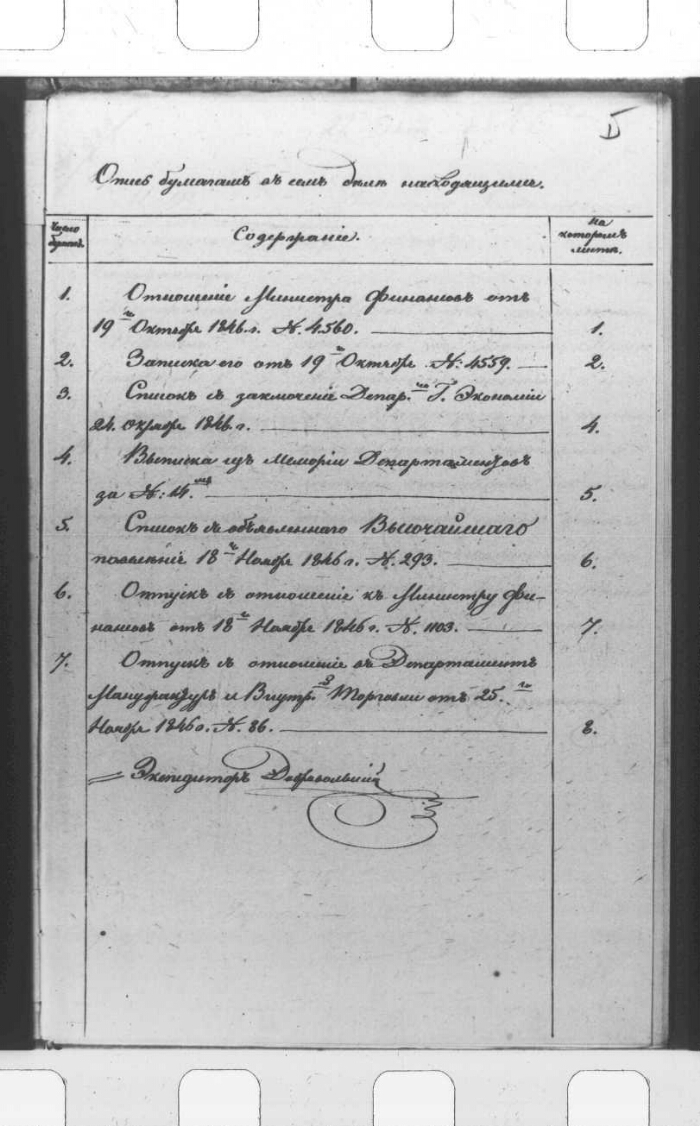 Опись бумагамъ въ семъ делѣ находящимся.
Число бумагъ.
Содержаніе.
На которомъ листѣ.
1. Отношеніе Министра Финансовъ отъ
19го Октября 1846 г. №. 4560. 1.
2. Записка его отъ 19го Октября №: 4559. 2.
3. Списокъ съ заключенія Депар.та Г. Экономіи
24. Октября 1846 г. 4.
4. Выписка изъ Меморіи Департаментовъ
за №: 14. 5.
5. Списокъ съ объявленнаго Высочайшаго
повелѣнія 18го Ноября 1846 г. №. 293. 6.
6. Отпускъ съ отношенія къ Министру Фи-
нансовъ отъ 18го Ноября 1846 г. №. 1103. 7.
7. Отпускъ съ отношенія въ Департаментъ
Мануфактуръ и Внутр. Торговли отъ 25.го
Ноября 1846 г. №. 86. 8.
Экспедиторъ